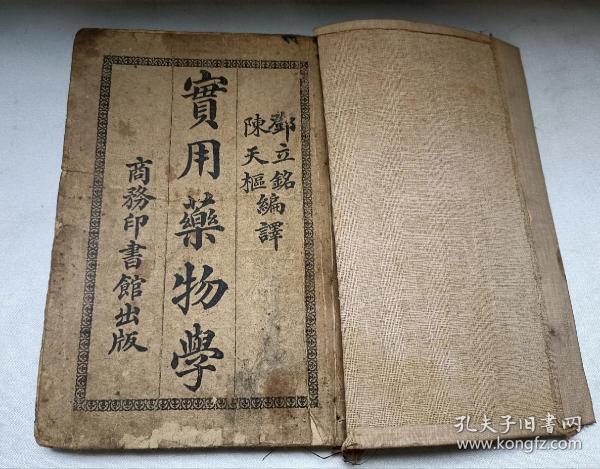 鄧立銘
陳天樞編譯
實用藥物學
商務印書館出版
孔夫子旧书网
www.kongfz.com